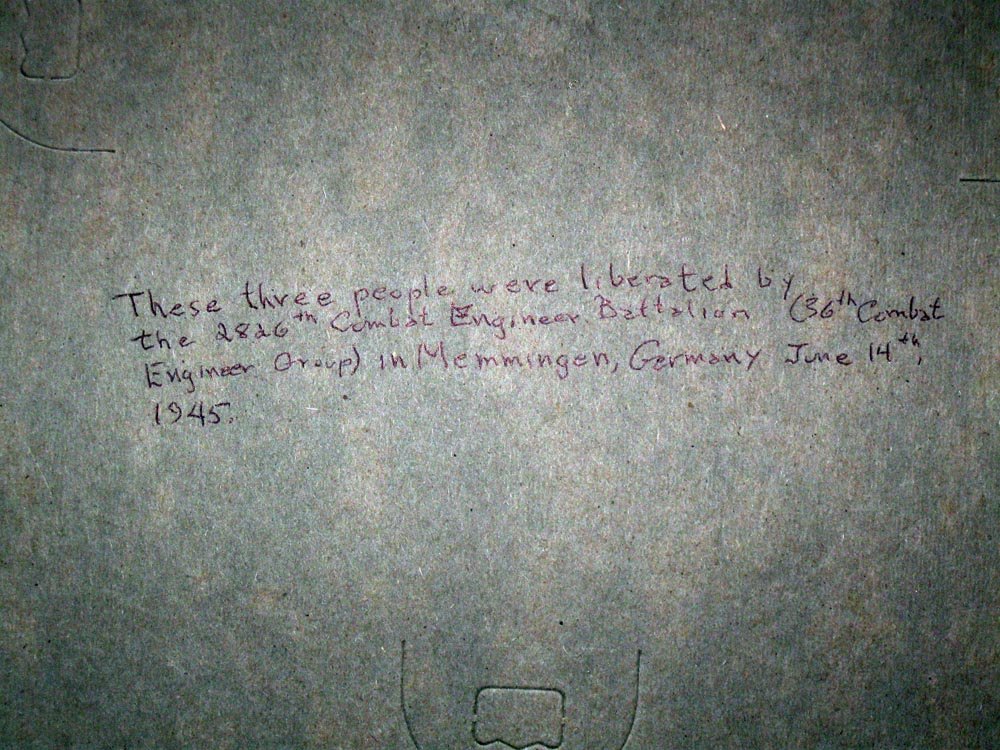 These three people were liberated by
the 2826th Combat Engineer Battalion (36th Combat
Engineer Group) in Memmingen, Germany June 14th,
1945.